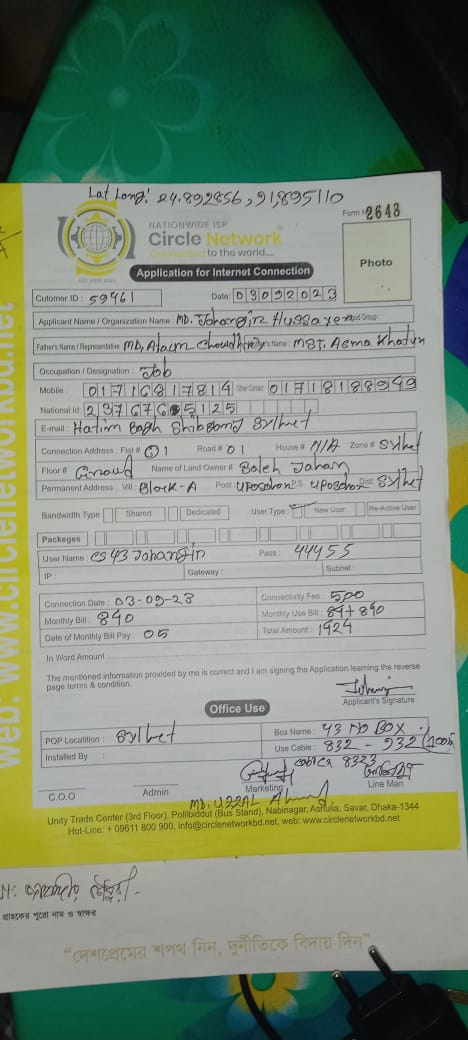 Lat Long: 24.892856, 91,895110
Form # 2643
NATIONWIDE ISP
Circle Network
Connected to the world....
Application for Internet Connection
Photo
Cutomer ID : 59461 Date: 03092023
Applicant Name / Organization Name : MD. Jahangir Hussa Blood Group :
Father's Name / Representative MD, Alam Chowdhury Mother's Name : MST. Asma Khatun
Occupation / Designation : Job
Mobile : 01716817814 Other Contact 01718188949
National Id: 2376765125
E-mail : Hatim Bagh Shibgonj Sylhet
Connection Address : Flat # 1 Road # 01 House # N/A Zone # Sylhet
Floor # Ground Name of Land Owner # Saleh Jahan
Permanent Address : Vill: Block-A Post UPoSohon P.S. UPoSohon Dist: Sylhet
Bandwidth Type Shared Dedicated User Type New User Re-Active User
Packeges
User Name : CS43 Jahangir Pass : 44455
IP : Gateway : Subnet :
Connection Date : 03-09-23 Connectivity Fee : 500
Monthly Bill : 840 Monthly Use Bill : 84+840
Date of Monthly Bill Pay : 05 Total Amount : 1424
In Word Amount :
The mentioned information provided by me is correct and I am signing the Application learning the reverse
page terms & condition.
Applicant's Signature
Office Use
POP Locatition : Sylhet Box Name : 43 NO BOX
Installed By : Use Cable : 832 - 932
8323
C.O.O Admin Marketing Line Man
MD. UZZAL Ahmed
Unity Trade Center (3rd Floor), Pollibiddut (Bus Stand), Nabinagar, Ashulia, Savar, Dhaka-1344
Hot-Line: + 09611 800 900, info@circlenetworkbd.net, web: www.circlenetworkbd.net
web: www.circlenetworkbd.net
গ্রাহকের পুরো নাম ও স্বাক্ষর
“দেশপ্রেমের শপথ নিন, দুর্নীতিকে বিদায় দিন”